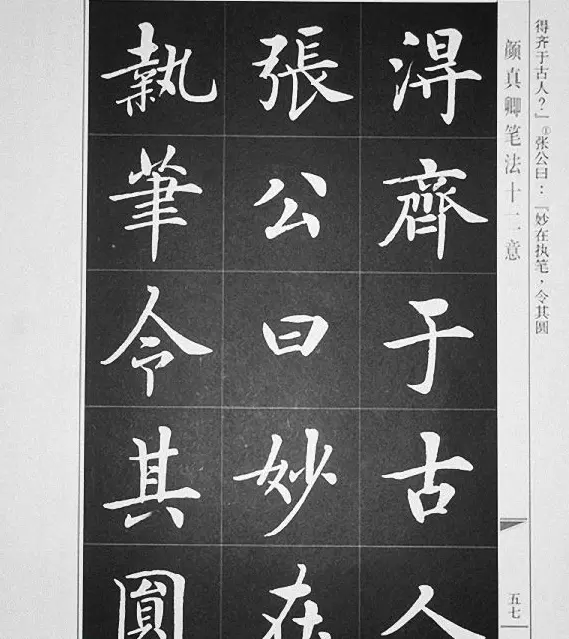 得齐于古人？」①张公曰：「妙在执笔，令其圆
颜真卿笔法十二意
五七
淂齊于古人
張公曰妙在
執筆令其圓